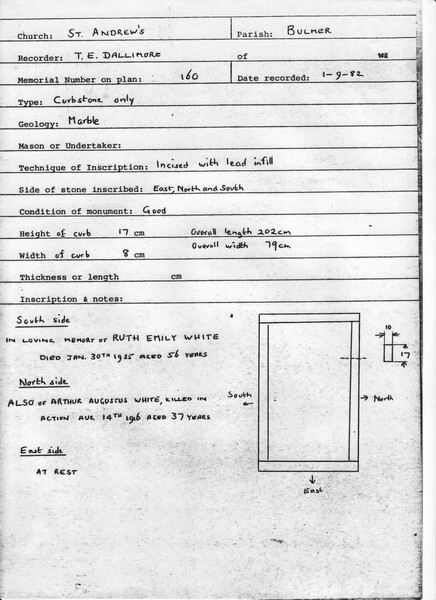 Church: ST. ANDREW'S Parish: BULMER
Recorder: T. E. DALLIMORE of
Memorial Number on plan: 160 Date recorded: 1-9-82
Type: Curbstone only
Geology: Marble
Mason or Undertaker:
Technique of Inscription: Incised with lead infill
Side of stone inscribed: East, North and South
Condition of monument: Good
Height of curb 17 cm Overall length 202cm
Overall width 79cm
Width of curb 8 cm
Thickness or length cm
Inscription & notes:
South side
IN LOVING MEMORY OF RUTH EMILY WHITE
DIED JAN. 30TH 1935 AGED 56 YEARS
North side
ALSO OF ARTHUR AUGUSTUS WHITE, KILLED IN
ACTION AUG 14TH 1916 AGED 37 YEARS
East side
AT REST
10
17
South
North
East